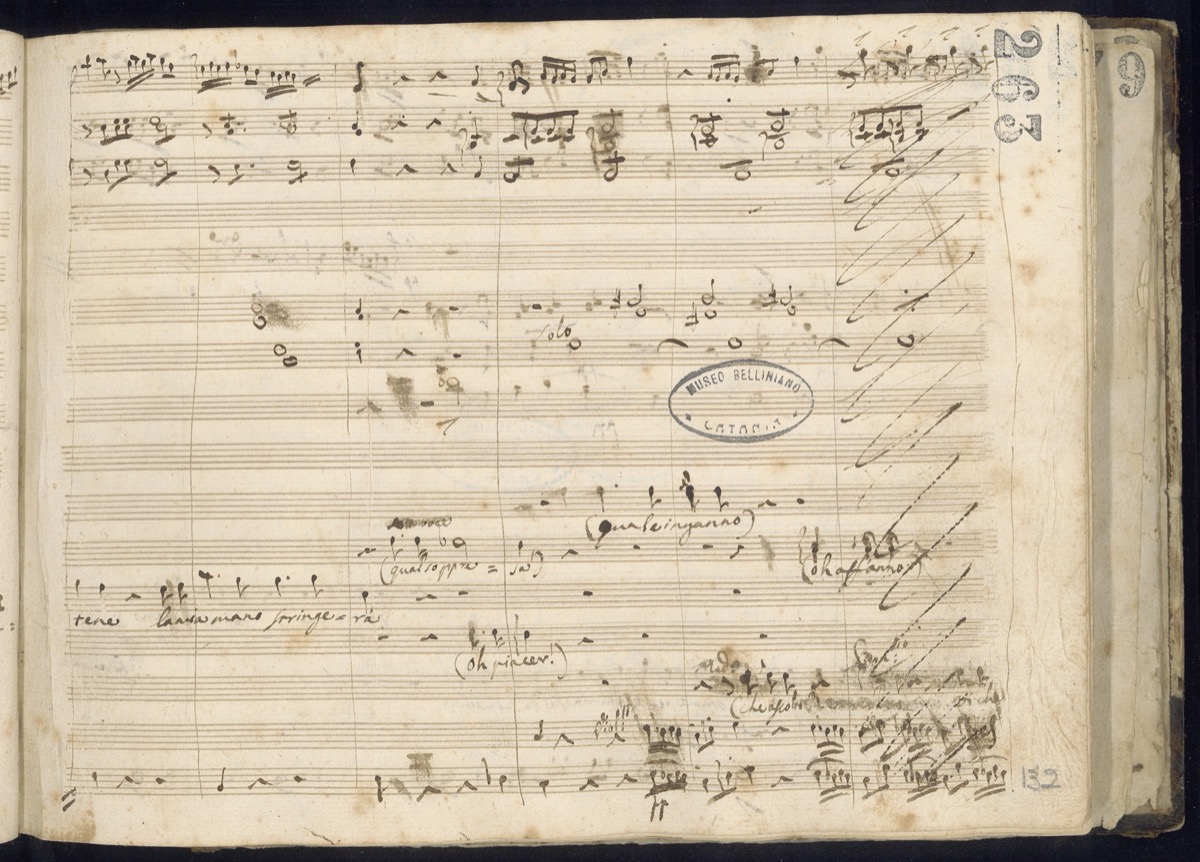 263
9
solo
MUSEO BELLINIANO
CATANIA
(qual inganno)
(qual soppre = sa)
(oh affanno)
tene la tua mano stringe = rà
(oh piacer!)
(che ascolto
132